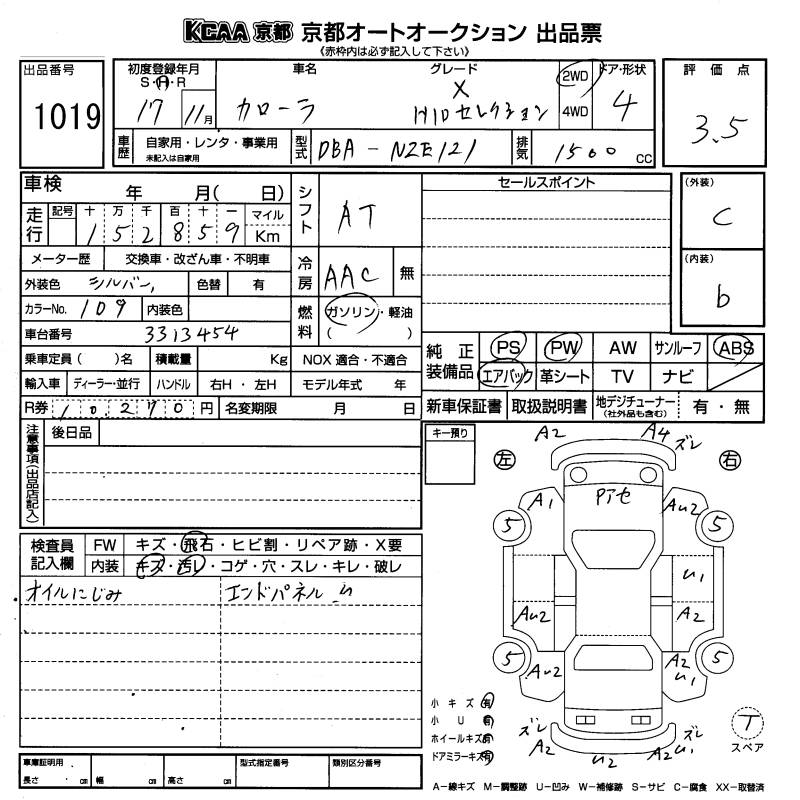 KCAA 京都 京都オートオークション 出品票
《赤枠内は必ず記入して下さい》
出品番号
1019
初度登録年月
S・H・R
17 11月
車名
カローラ
グレード
X
HIDセレクション
2WD
4WD
ドア・形状
4
評価点
3.5
車歴
自家用・レンタ・事業用
未記入は自家用
型式
DBA-NZE121
排気
1500 CC
車検 年 月( 日)
走行
記号 十 万 千 百 十 一 マイル
152859 Km
メーター歴 交換車・改ざん車・不明車
外装色 シルバー 色替 有
カラーNo. 109 内装色
車台番号 3313454
乗車定員( )名 積載量 Kg
輸入車 ディーラー・並行 ハンドル 右H・左H
R券 10,270円 名変期限 月 日
シフト
AT
冷房
AAC 無
燃料
ガソリン・軽油
( )
NOX 適合・不適合
モデル年式 年
セールスポイント
(外装)
C
(内装)
b
純正装備品
PS PW AW サンルーフ ABS
エアバック 革シート TV ナビ
新車保証書 取扱説明書 地デジチューナー(社外品も含む) 有・無
注意事項(出品店記入)
後日品
キー預り
検査員記入欄
FW キズ・飛石・ヒビ割・リペア跡・X要
内装 キズ・汚レ・コゲ・穴・スレ・キレ・破レ
オイルにじみ
エンドパネル
左
右
A2
A4 ズレ
A1
Pアセ
AU2
5
5
U1
AU2
A2
5
AU2
A2
U1
5
ズレ
A2
U2
ズレ
A2
T
スペア
小キズ 有
小U 有
ホイールキズ 有
ドアミラーキズ 有
車庫証明用
長さ cm 幅 cm 高さ cm
型式指定番号
類別区分番号
A−線キズ M−調整跡 U−凹み W−補修跡 S−サビ C−腐食 XX−取替済